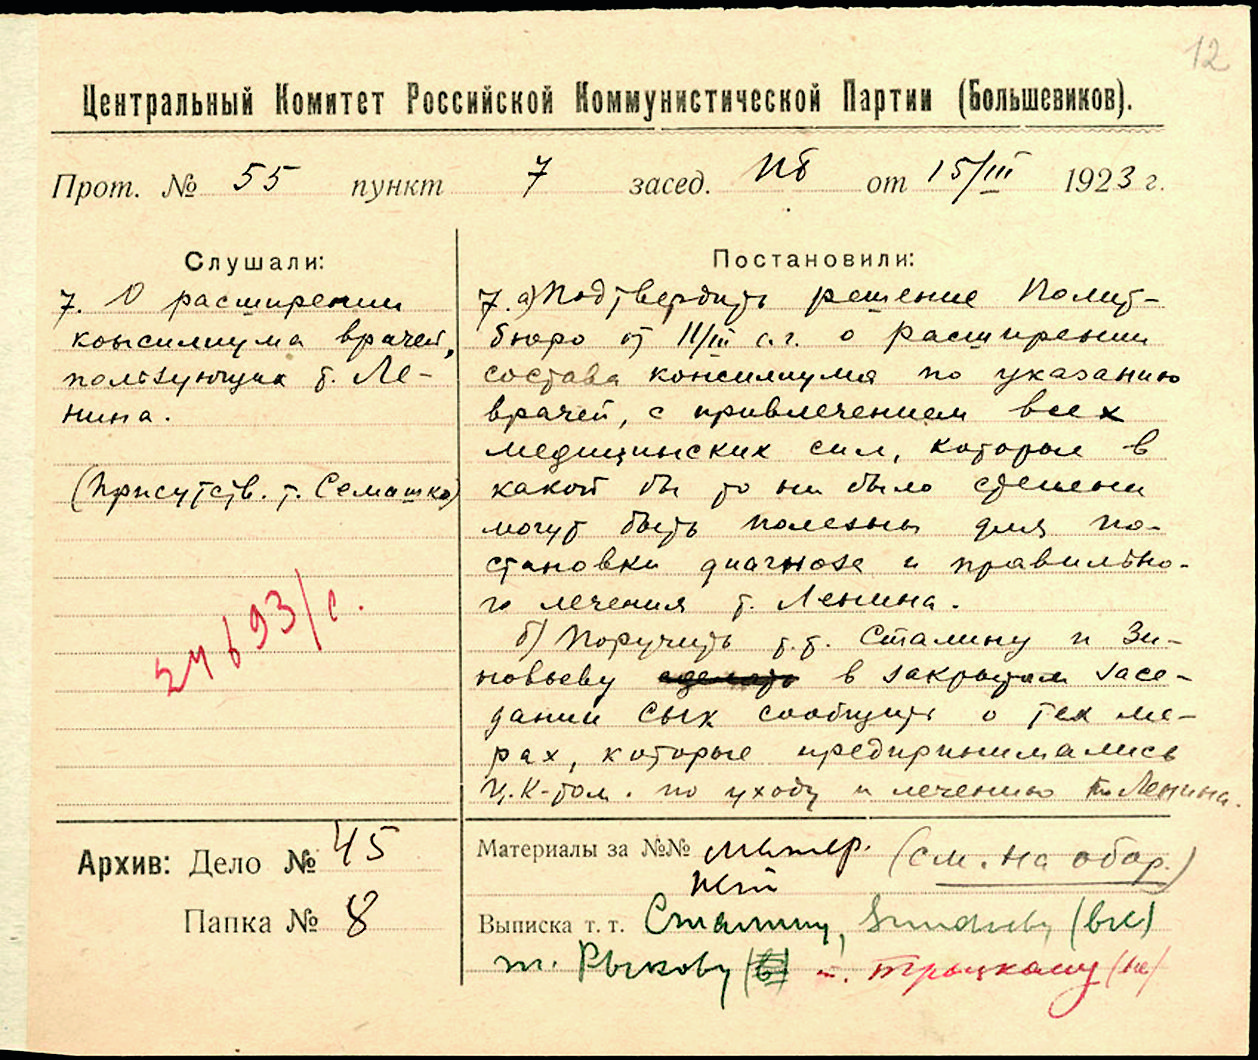 12
Центральный Комитет Российской Коммунистической Партии (Большевиков).
Прот. № 55 пункт 7 засед. ПБ от 15/III 1923 г.
Слушали:
7. О расширении
консилиума врачей,
пользующих т. Ле-
нина.
(Присутств. т. Семашко)
Постановили:
7. а) Подтвердить решение Полит-
бюро от 11/III с.г. о расширении
состава консилиума по указанию
врачей, с привлечением всех
медицинских сил, которые в
какой бы то ни было степени
могут быть полезны для по-
становки диагноза и правильно-
го лечения т. Ленина.
б) Поручить т.т. Сталину и Зи-
новьеву в закрытом засе-
дании СНК сообщить о тех ме-
рах, которые предпринимались
Ц.К-том. по уходу и лечению т. Ленина.
Архив: Дело № 45
Папка № 8
Материалы за №№ (см. на обор.)
Выписка т. т. Сталину, Зиновьеву (вк)
т. Рыкову т. Троцкому (вк)